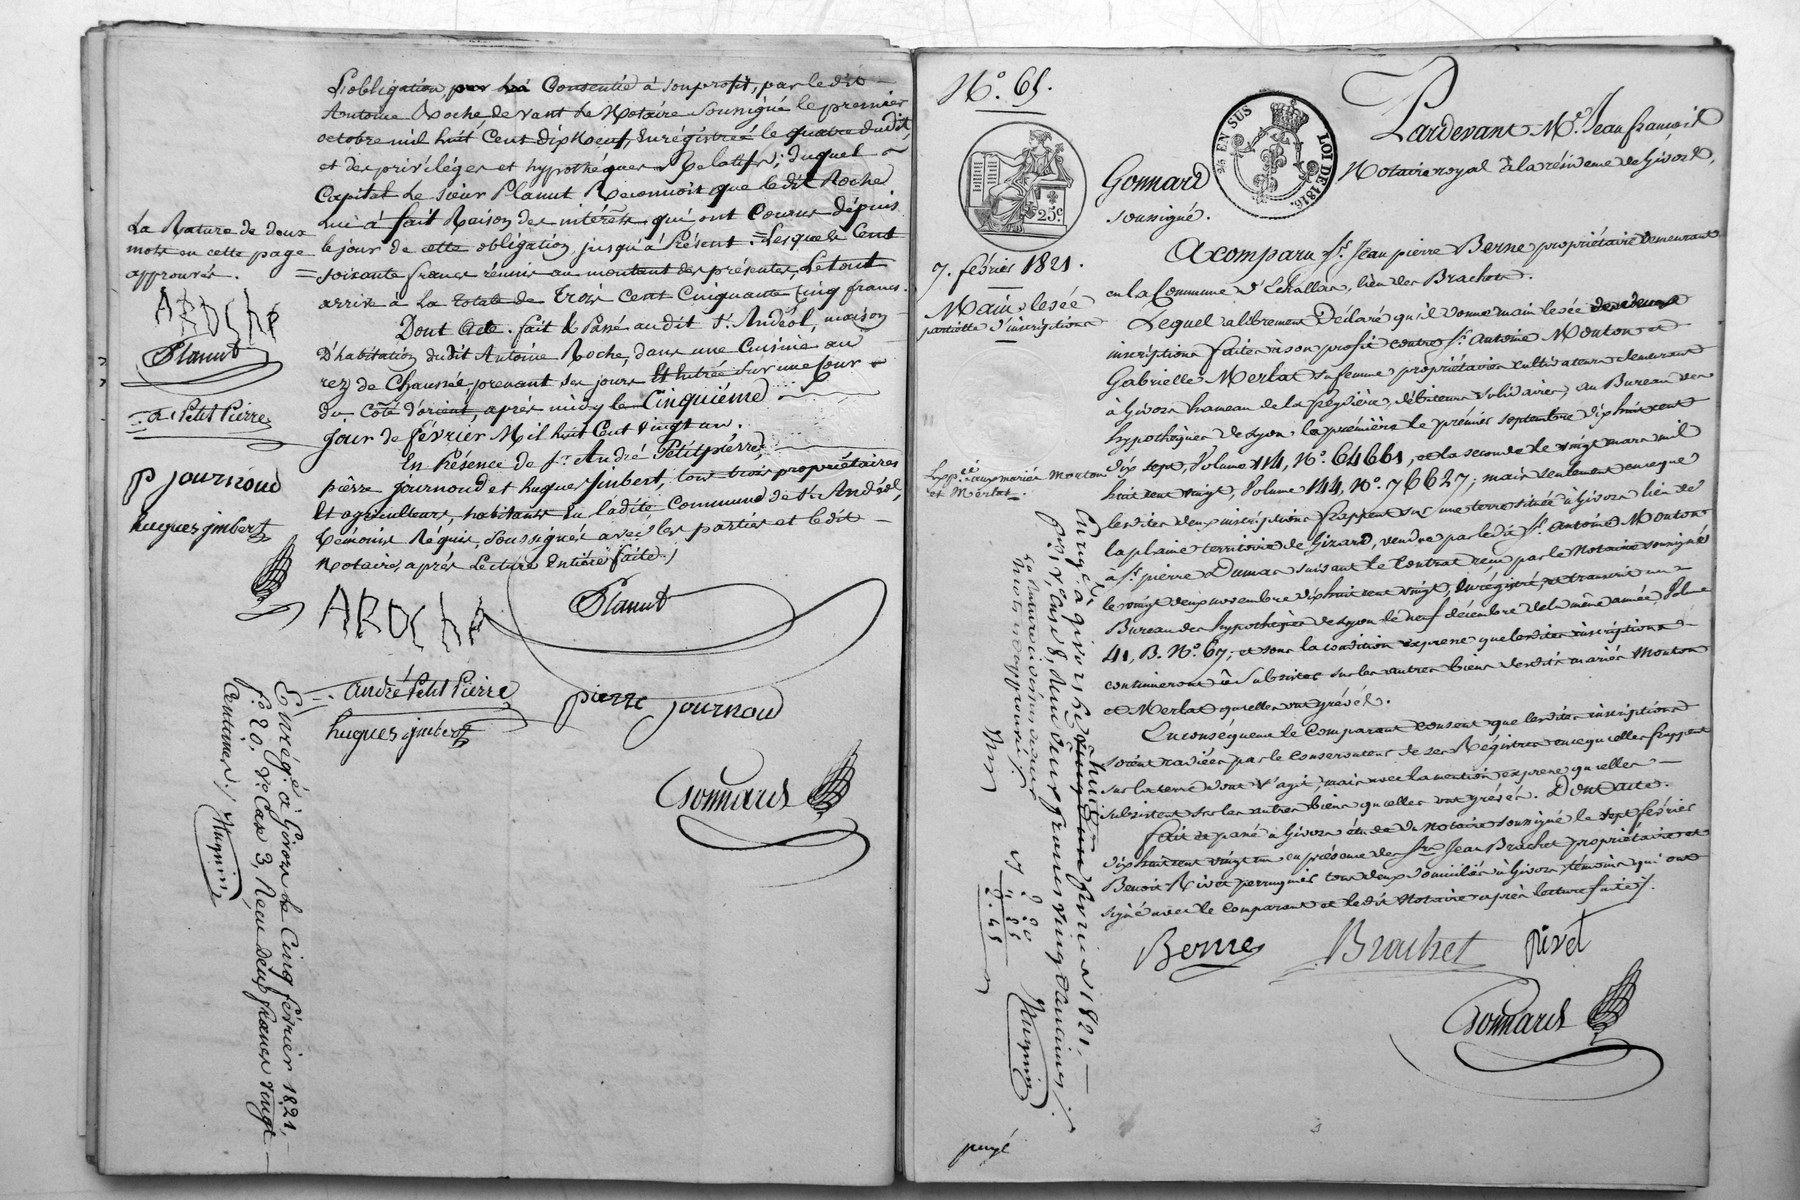 L'obligation, par lui Consentie à son profit, par le dit
Antoine Roche devant le Notaire soussigné le premier
octobre mil huit Cent dix Neuf, Enregistrée le quatre dudit,
et des priviléges et hypothéques Relatifs; duquel
Capital Le Sieur Planut Reconnoit que le dit Roche
Lui a fait Raison des intérêts qui ont Courus depuis
le jour de cette obligation jusqu'à Présent. = Lesquels Cent
= soixante francs réunis au montant des présentes, Le tout
arrive à La totale de Trois Cent Cinquante Cinq francs.
Dont Acte. fait & Passé audit St. Andéol, maison
D'habitation dudit Antoine Roche, dans une Cuisine au
rez de Chaussée, prenant ses jours Et Entrée Sur une Cour
du Côté d'orient, après midy le Cinquiéme
Jour de février Mil huit Cent vingt un.
En Présence de Sr. André Petitpierre,
pierre Journoud et hugues Jmbert, tous trois propriétaires
Et agriculteurs, habitants En ladite Commune de St. Andéol,
témoins Réquis, Soussignés avec les parties et le dit
Notaire, après Lecture Entière faite./
La Rature de deux
mots en cette page
approuvée.
AROCHE
Planut
a. Petit Pierre
P Journoud
hugues jmbert
AROCHE
Planut
André Petit Pierre
pierre journoud
hugues jmbert
Gonnard
Enregé. à Givors Le Cinq février 1821,
fo. 20, Vo. Case 3, Reçu deux francs vingt
Centimes./. Huguin
No. 65.
25 c
25 EN SUS
LOI DE 1816.
7. février 1821.
Main levée
partielle d'inscriptions
Pardevant Me. Jean françois
Gonnard Notaire royal à la résidence de Givors,
soussigné.
A comparu Sr. Jean pierre Berne propriétaire demeurant
en la Commune d'Echallas, lieu des Brachets.
Lequel a librement Déclaré qu'il donne main levée de deux
inscriptions faites à son profit contre Sr. Antoine Mouton et
Gabrielle Merlat sa femme propriétaires cultivateurs demeurant
à Givors hameau de la , débiteurs solidaires, au Bureau des
hypothèques de Lyon la première le premier septembre dix huit cent
dix sept, Volume 114, No. 64661, et la seconde le vingt mars mil
huit cent vingt, Volume 144, No. 76627; mais seulement en ce que
lesdites deux inscriptions frappent sur une terre située à Givors lieu de
la plaine territoire de Gizard, vendue par led. Sr. Antoine Mouton
à Sr. pierre Dumas suivant le Contrat reçu par le Notaire soussigné
le vingt deux novembre dix huit cent vingt, Enregistré, et transcrit au
Bureau des hypothèques de Lyon le neuf décembre de la même année, Volume
41, B. No. 67; et sous la condition expresse que lesdites inscriptions
continueront à subsister sur les autres biens desdits mariés Mouton
et Merlat qu'elles ont grévés.
En conséquence le Comparant consent que lesdites inscriptions
soient radiées par le Conservateur de ses Régistres en ce qu'elles frappent
sur la terre dont s'agit, mais avec la mention expresse qu'elles
subsistent sur les autres biens qu'elles ont grévés. Dont acte.
Fait et passé à Givors étude du Notaire soussigné le sept février
dix huit cent vingt un en présence des Srs. Jean Brachet propriétaire et
Benoit Rivet perruquier tous deux domiciliés à Givors, témoins qui ont
signé avec le Comparant et le dit Notaire après lecture faite./.
Berne
Brachet
Rivet
Gonnard
mariés Mouton
et Merlat.
Enregé. à Givors le huit février 1821,
Vo. Case 8, Reçu deux francs vingt centimes./.
Huguin
2. 20
2. 45
purgé